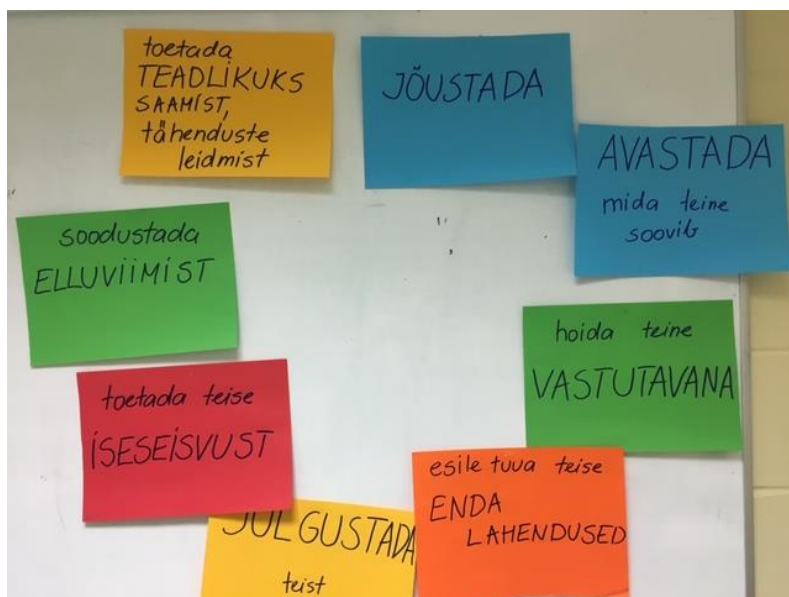 toetada
TEADLIKUKS
SAAMIST,
tähenduste
leidmist
JÕUSTADA
AVASTADA
mida teine
soovib
soodustada
ELLUVIIMIST
hoida teine
VASTUTAVANA
toetada teise
ISESEISVUST
esile tuua teise
ENDA
LAHENDUSED
JULGUSTADA
teist